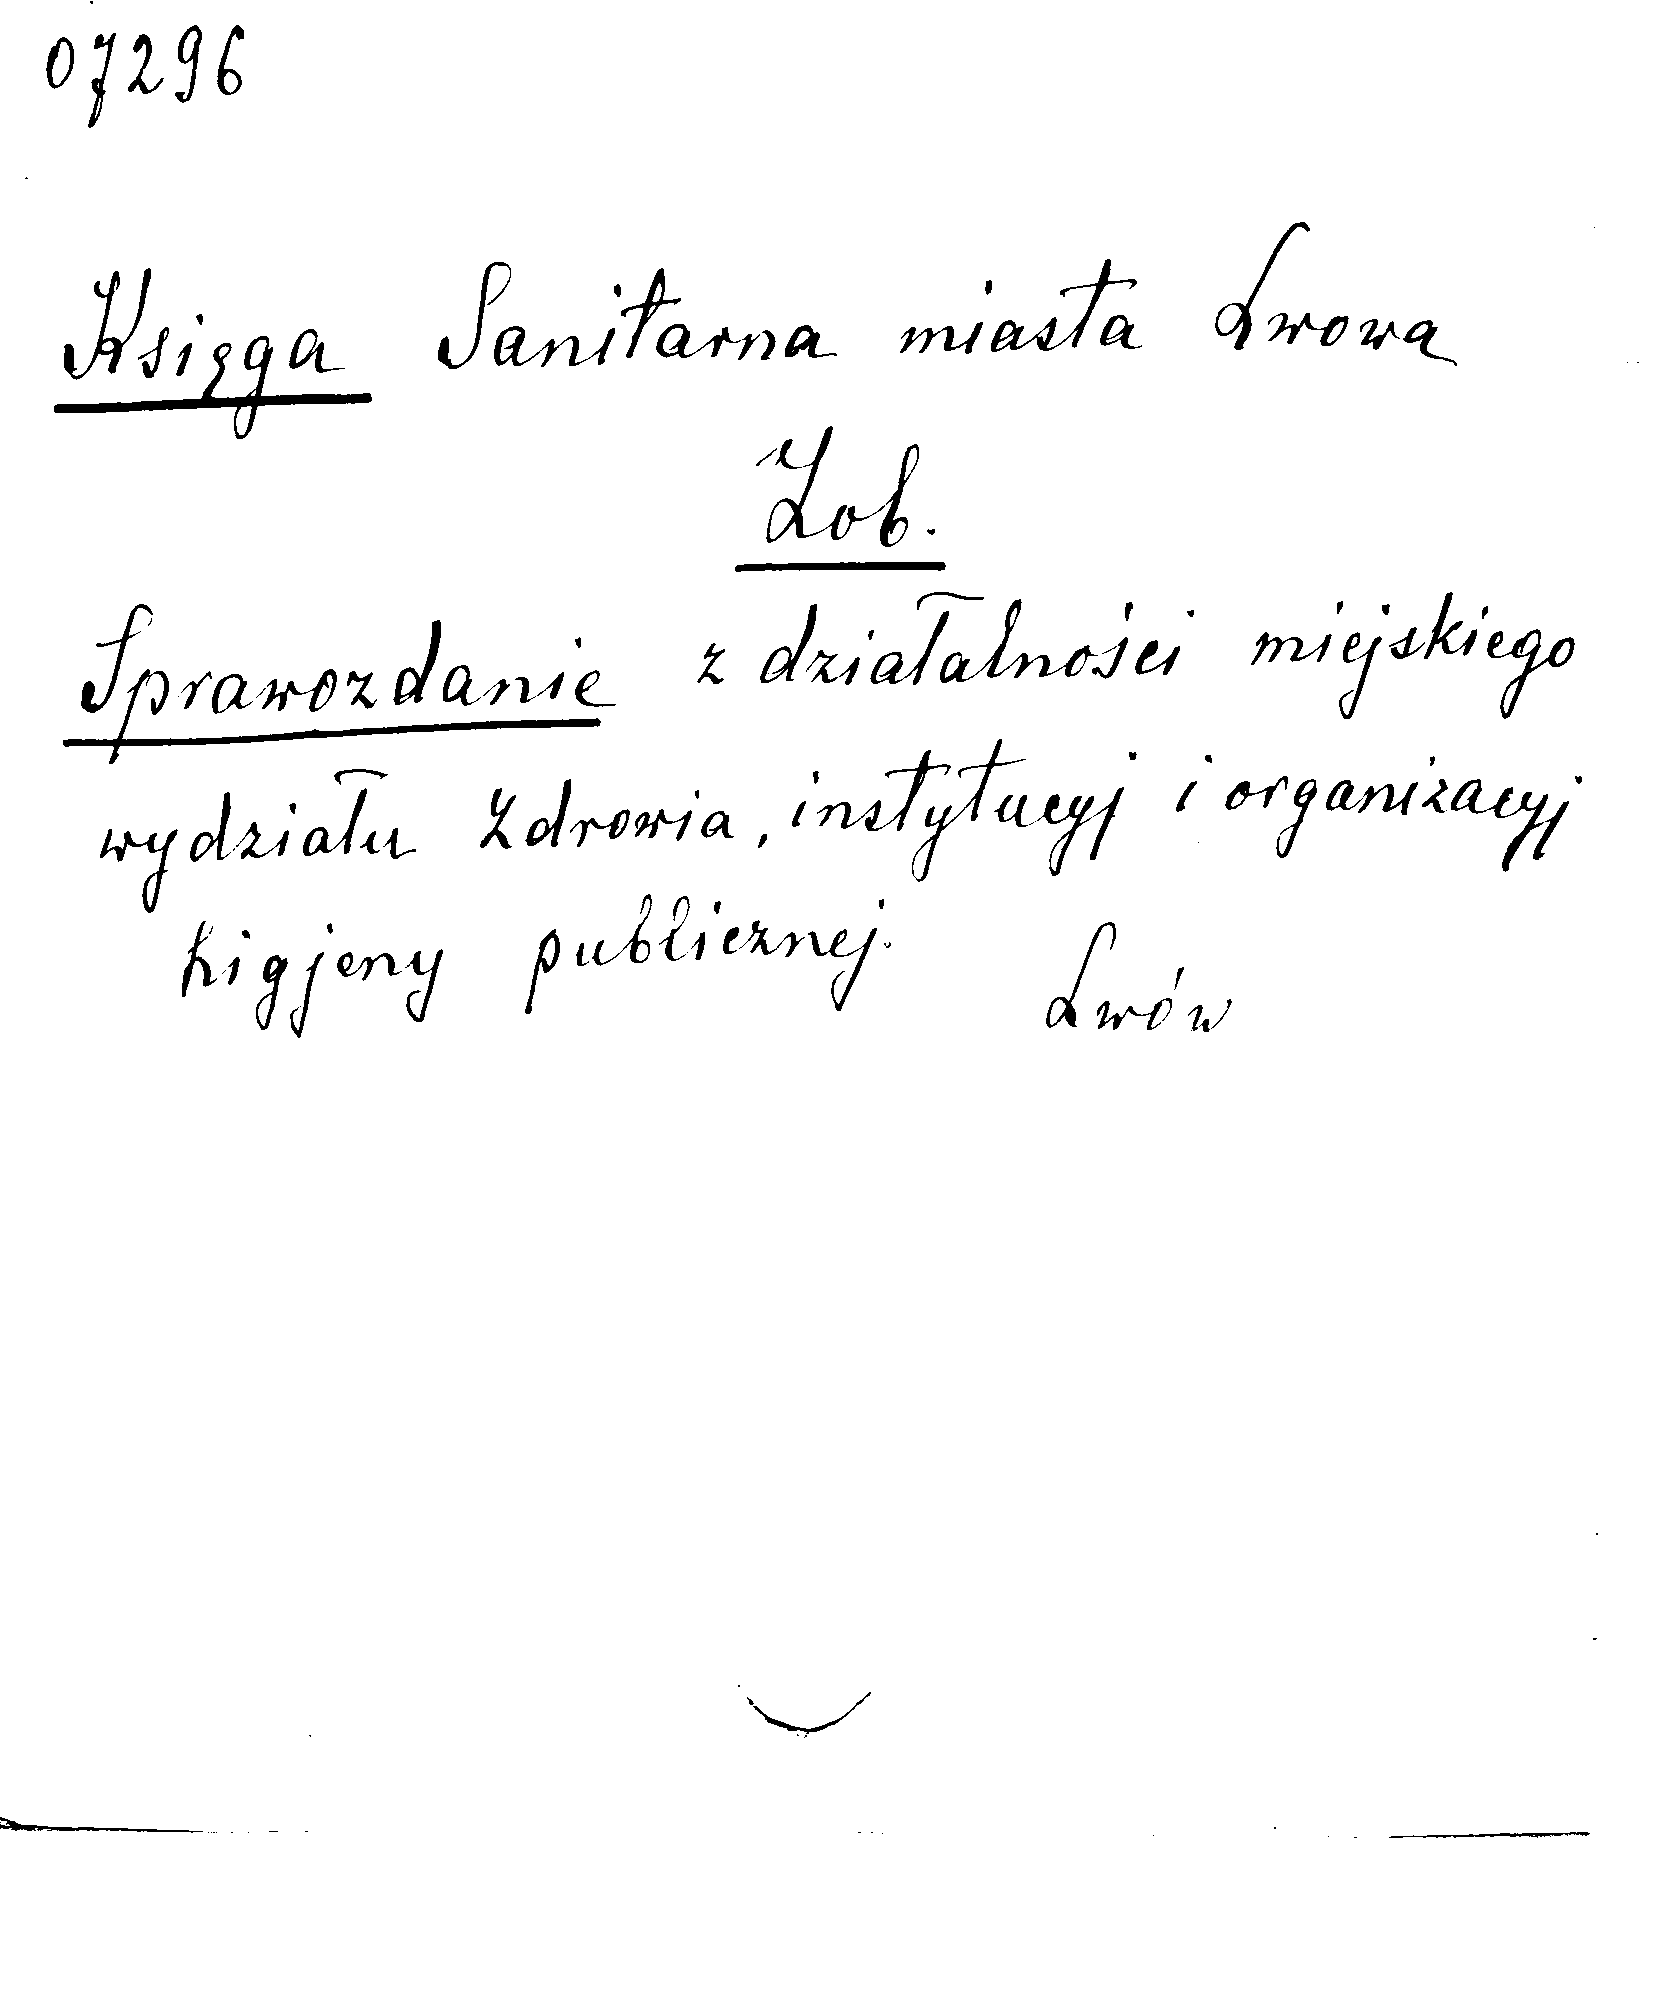 07296
Księga Sanitarna miasta Lwowa
Zob.
Sprawozdanie z działalności miejskiego
wydziału Zdrowia, instytucyj i organizacyj
higjeny publicznej.
Lwów